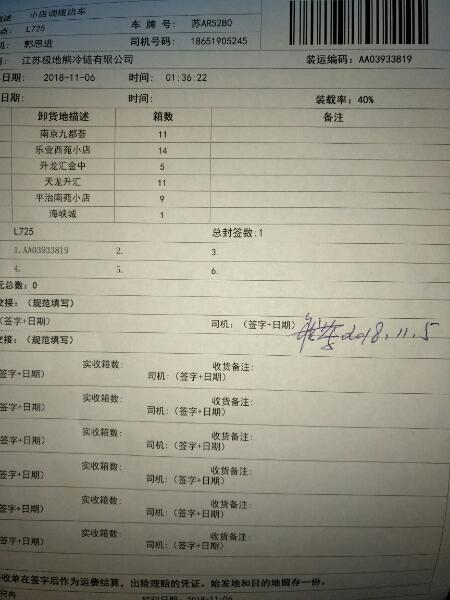 述: 小店调拨班车
点: L725 车 牌 号: 苏AR52B0
机: 郭思进 司机号码: 18651905245
商: 江苏极地熊冷链有限公司 装运编码: AA03933819
日期: 2018-11-06 时间: 01:36:22
日期: 时间: 装载率: 40%
卸货地描述 箱数 备注
南京九都荟 11
乐业西苑小店 14
升龙汇金中 5
天龙升汇 11
平治南苑小店 9
海峡城 1
L725 总封签数:1
1.AA03933819 2. 3.
4. 5. 6.
总数: 0
交接: (规范填写)
(签字+日期) 司机: (签字+日期) 2018.11.5
交接: (规范填写)
实收箱数: 收货备注:
签字+日期) 司机: (签字+日期)
实收箱数: 收货备注:
签字+日期) 司机: (签字+日期)
实收箱数: 收货备注:
签字+日期) 司机: (签字+日期)
实收箱数: 收货备注:
签字+日期) 司机: (签字+日期)
实收箱数: 收货备注:
签字+日期) 司机: (签字+日期)
实收箱数: 收货备注:
签字+日期) 司机: (签字+日期)
收单在签字后作为运费结算, 出险理赔的凭证。始发地和目的地留存一份。
打印日期 2018-11-06